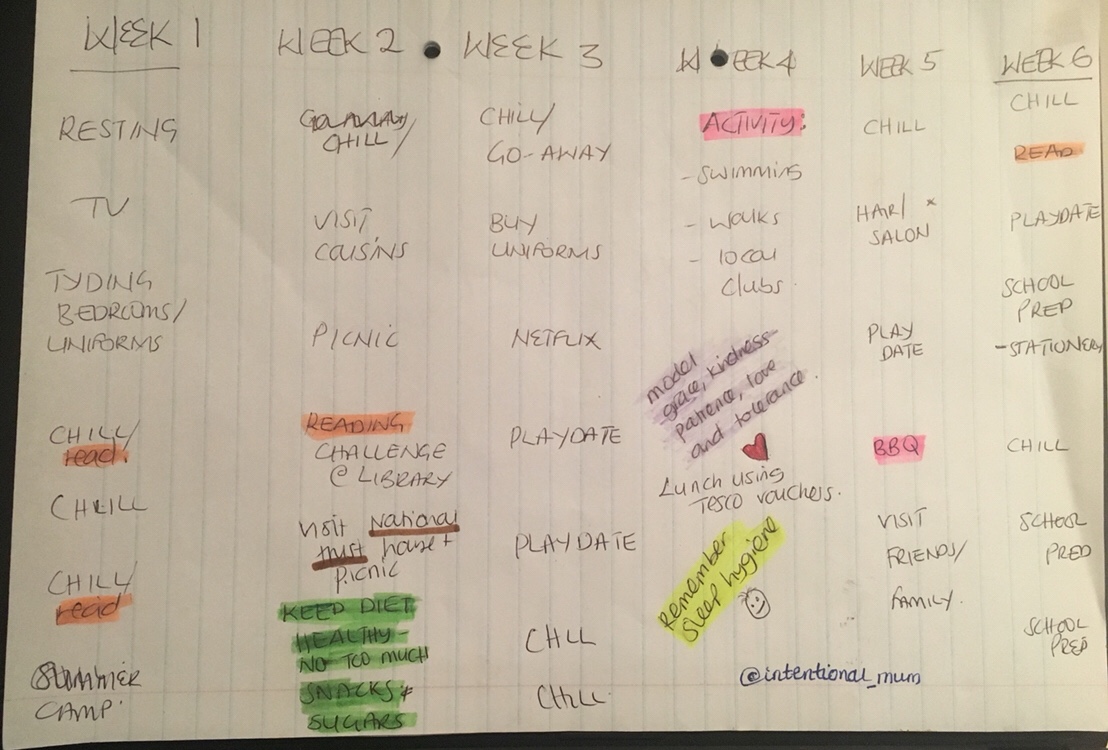 WEEK 1
RESTING
TV
TYDING
BEDROOMS/
UNIFORMS
CHILL/
read.
CHLILL
CHILL/
read
SUMMER
CAMP.
WEEK 2
CHILL/
VISIT
COUSINS
PICNIC
READING
CHALLENGE
@ LIBRARY
Visit National
trust house +
picnic
KEEP DIET
HEALTHY-
NO TOO MUCH
SNACKS +
SUGARS
WEEK 3
CHILL/
GO-AWAY
BUY
UNIFORMS
NETFLIX
PLAYDATE
PLAYDATE
CHLL
CHILL.
WEEK 4
ACTIVITY:
- SWIMMING
- walks
- local
clubs.
model
grace, kindness
patience, love
and tolerance.
Lunch using
TESCO vouchers.
Remember
sleep hygiene
@intentional_mum
WEEK 5
CHILL
HAIR/ *
SALON
PLAY
DATE
BBQ
VISIT
FRIENDS/
FAMILY.
WEEK 6
CHILL
READ
PLAYDATE
SCHOOL
PREP
-STATIONERY
CHILL
SCHOOL
PREP
SCHOOL
PREP